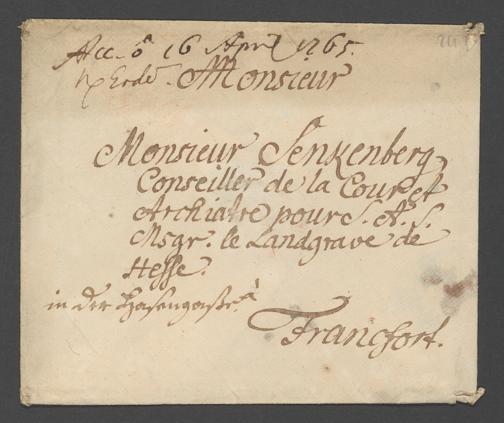 Acc. ō 16 April 1765.
Monsieur
Monsieur Senkenberg
Conseiller de la Cour et
Archiatre pour S. A. S.
Msgr. le Landgrave de
Hesse.
in der Hasengaße
Francfort.